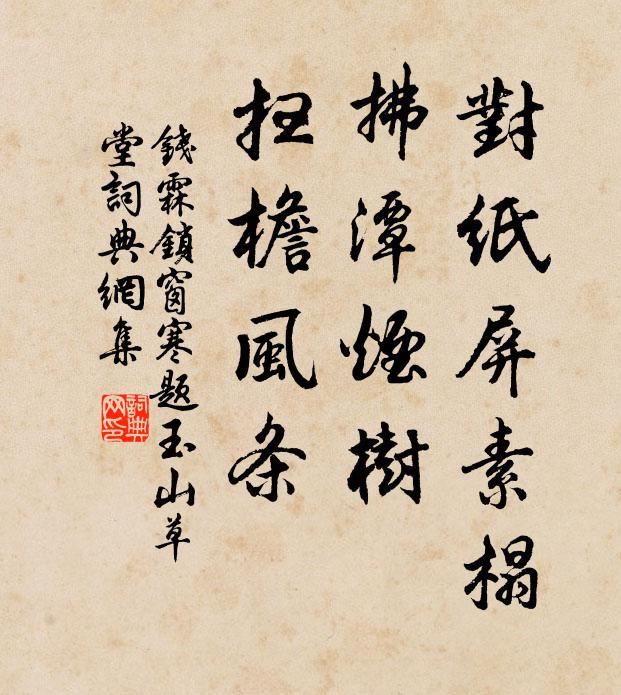 對紙屏素榻
拂潭煙樹
扫檐風条
錢霖鎖窗寒题玉山草
堂詞典網集
詞典网印